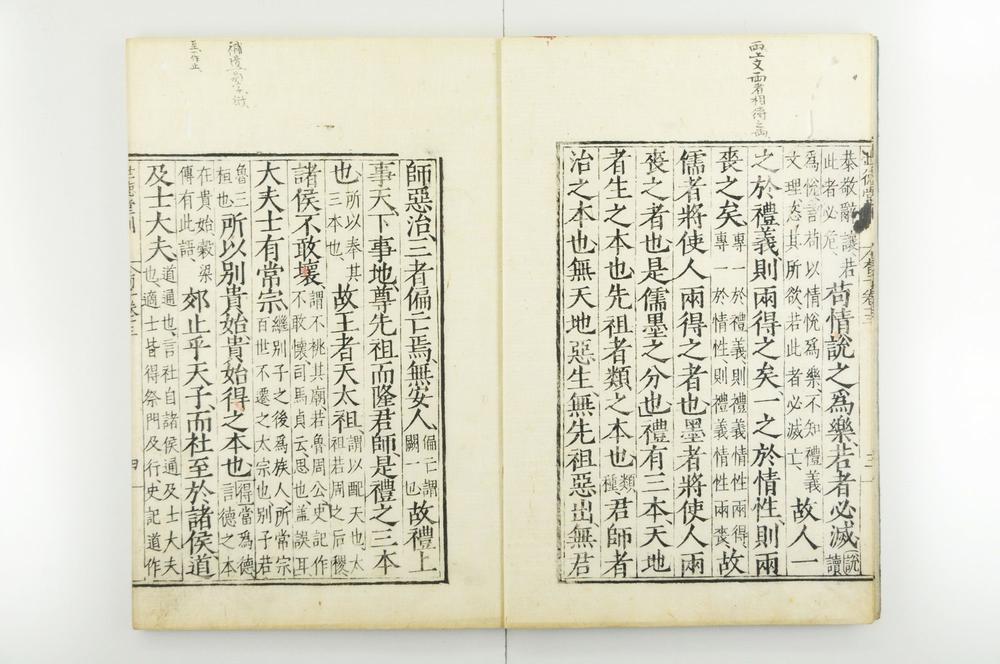 恭敬辭讓若此者必危苟情說之爲樂若者必滅說讀
爲悅言苟以情悅爲樂不知禮義文理恣其所欲若此者必滅亡故人一
之於禮義則兩得之矣一之於情性則兩
喪之矣專一於禮義則禮義情性兩得專一於情性則禮義情性兩喪故
儒者將使人兩得之者也墨者將使人兩
喪之者也是儒墨之分也禮有三本天地
者生之本也先祖者類之本也類種君師者
治之本也無天地惡生無先祖惡出無君
師惡治三者偏亡焉無安人偏亡謂闕一也故禮上
事天下事地尊先祖而隆君師是禮之三本
也所以奉其三本也故王者天太祖謂以配天也太祖若周之后稷
諸侯不敢壞謂不祧其廟若魯周公史記作不敢懷司馬貞云思也蓋誤耳
大夫士有常宗繼別子之後爲族人所常宗百世不遷之太宗也別子若
魯三桓也所以別貴始貴始得之本也得當爲德言德之本
在貴始穀梁傳有此語郊止乎天子而杜至於諸侯道
及士大夫道通也言社自諸侯通及士大夫也適士皆得祭門及行史記道作
至一作止